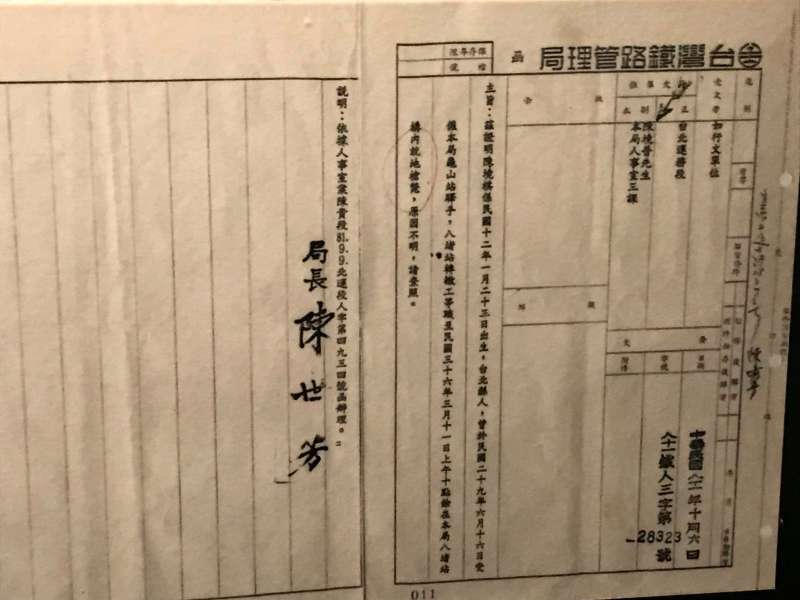 台灣鐵路管理局 函
保存年限
檔號
受文者
如行文單位
行文單位
正本
台北運務段
副本
陳境晉先生
本局人事室三課
批示
擬辦
發文
日期
中華民國八十一年十月六日
字號
八十一鐵人三字第28323號
附件
主旨:茲證明陳境棋係民國十二年一月二十三日出生,台北縣人,曾於民國二十九年六月十六日受
僱本局龜山站驛手,八堵站轉轍工等職至民國三十六年三月十一日上午十點餘在本局八堵站
構內就地槍斃,原因不明,請查照。
說明:依據人事室案陳貴段81.9.9.北運段人字第四九三四號函辦理。
局長 陳世芳
011